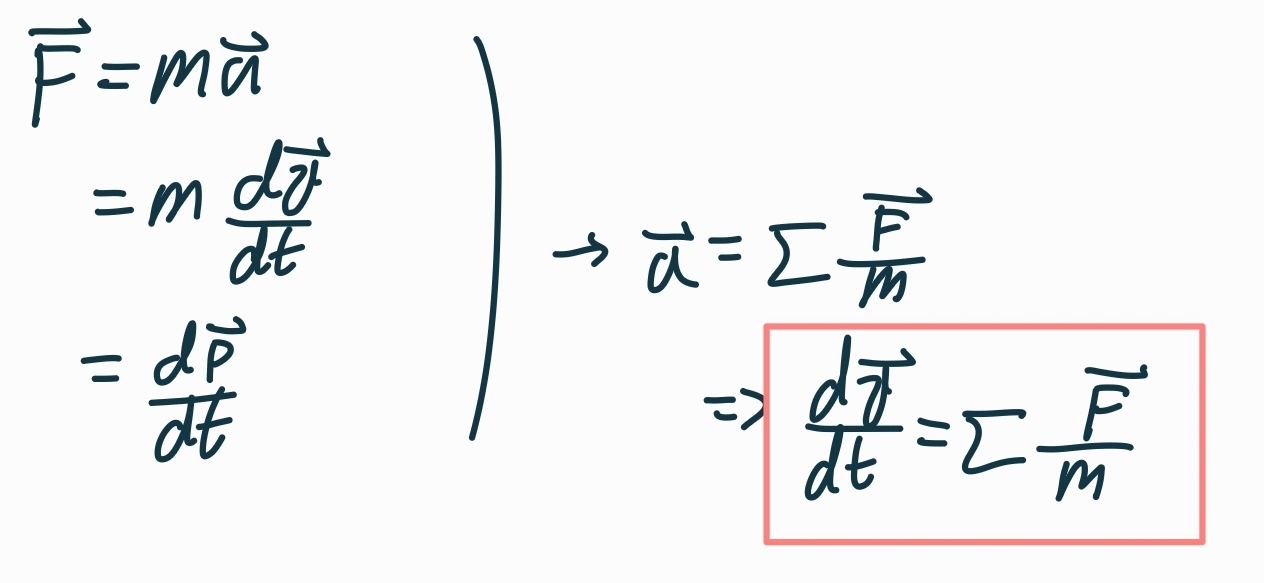 F⃗ = m a⃗
= m dv⃗/dt
= dp⃗/dt
→ a⃗ = Σ F⃗/m
=> dv⃗/dt = Σ F⃗/m